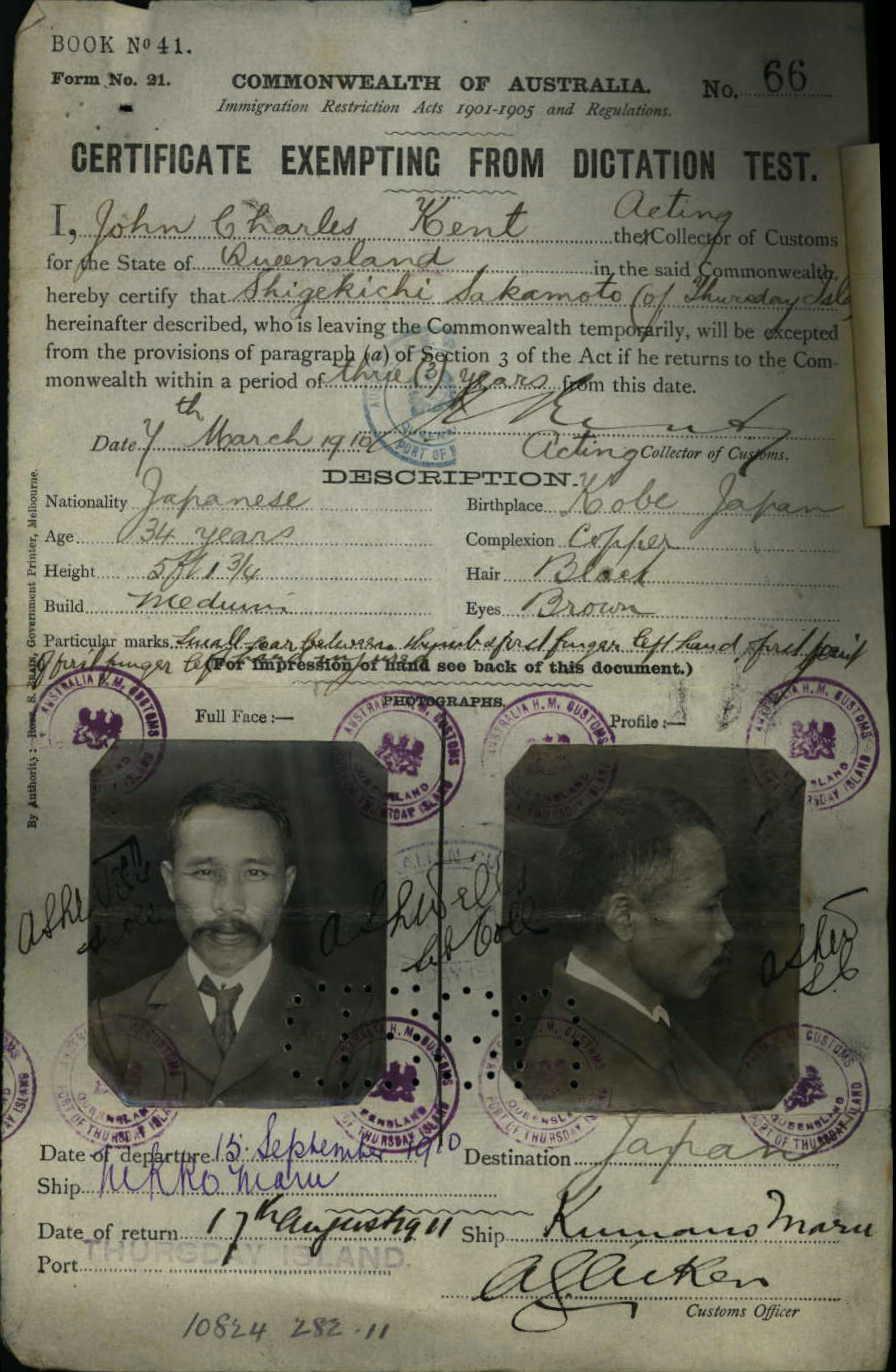 BOOK No 41.
Form No. 21.
COMMONWEALTH OF AUSTRALIA.
No. 66
Immigration Restriction Acts 1901-1905 and Regulations.
CERTIFICATE EXEMPTING FROM DICTATION TEST.
I, John Charles Kent the Acting Collector of Customs
for the State of Queensland in the said Commonwealth,
hereby certify that Shigekichi Sakamoto (of Thursday Isla
hereinafter described, who is leaving the Commonwealth temporarily, will be excepted
from the provisions of paragraph (a) of Section 3 of the Act if he returns to the Com-
monwealth within a period of three (3) years from this date.
Date 7th March 1910
Acting Collector of Customs.
DESCRIPTION.
Nationality Japanese
Birthplace Kobe Japan
Age 34 years
Complexion Copper
Height 5 ft 1 3/4
Hair Black
Build Medium
Eyes Brown
Particular marks Small scar between thumb & first finger left hand, first joint
of first finger left
(For impression of hand see back of this document.)
PHOTOGRAPHS.
Full Face :—
Profile :—
AUSTRALIA H.M. CUSTOMS
QUEENSLAND
PORT OF THURSDAY ISLAND
Date of departure 15 September 1910
Destination Japan
Ship Nikko Maru
Date of return 17th August 1911
Ship Kumano Maru
Port THURSDAY ISLAND.
Customs Officer
10824 282.11
Government Printer, Melbourne.
By Authority: